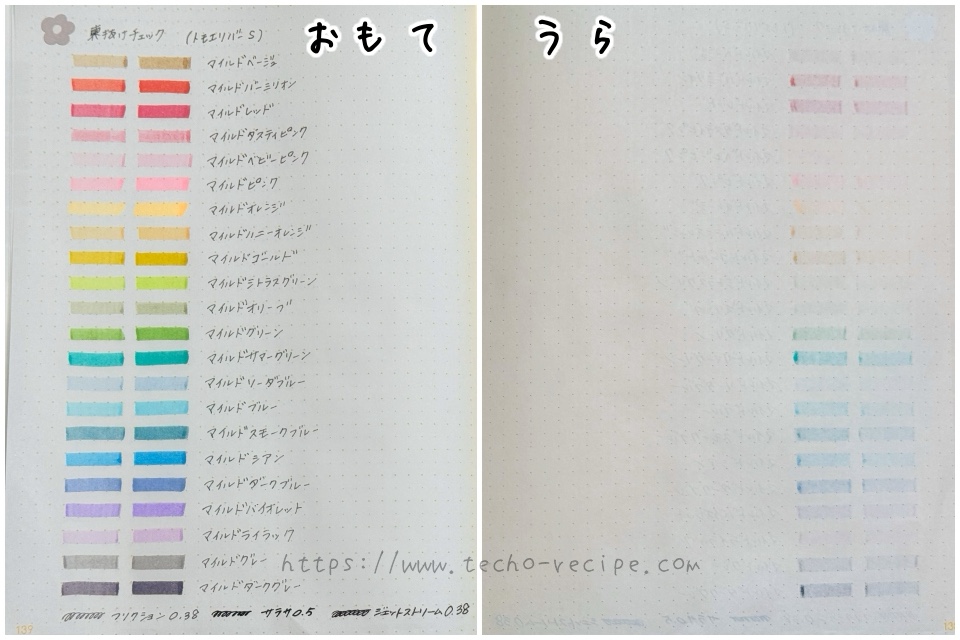 おもて
うら
裏抜けチェック (トモエリバーS)
マイルドベージュ
マイルドバーミリオン
マイルドレッド
マイルドダスティピンク
マイルドベビーピンク
マイルドピンク
マイルドオレンジ
マイルドハニーオレンジ
マイルドゴールド
マイルドシトラスグリーン
マイルドオリーブ
マイルドグリーン
マイルドサマーグリーン
マイルドソーダブルー
マイルドブルー
マイルドスモークブルー
マイルドシアン
マイルドダークブルー
マイルドバイオレット
マイルドライラック
マイルドグレー
マイルドダークグレー
https://www.techo-recipe.com
フリクション0.38 サラサ0.5 ジェットストリーム0.38
139